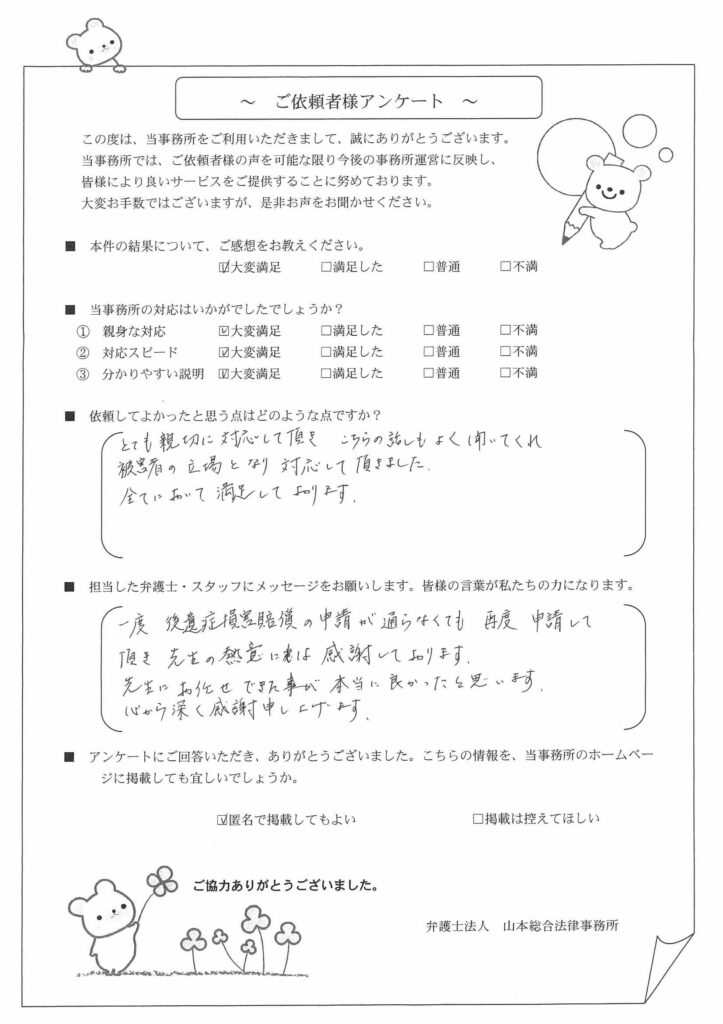 ～ ご依頼者様アンケート ～
この度は、当事務所をご利用いただきまして、誠にありがとうございます。
当事務所では、ご依頼者様の声を可能な限り今後の事務所運営に反映し、
皆様により良いサービスをご提供することに努めております。
大変お手数ではございますが、是非お声をお聞かせください。
■ 本件の結果について、ご感想をお教えください。
☑大変満足 □満足した □普通 □不満
■ 当事務所の対応はいかがでしたでしょうか？
① 親身な対応 ☑大変満足 □満足した □普通 □不満
② 対応スピード ☑大変満足 □満足した □普通 □不満
③ 分かりやすい説明 ☑大変満足 □満足した □普通 □不満
■ 依頼してよかったと思う点はどのような点ですか？
とても親切に対応して頂き こちらの話しもよく聞いてくれ
被害者の立場となり対応して頂きました.
全てにおいて満足しております.
■ 担当した弁護士・スタッフにメッセージをお願いします。皆様の言葉が私たちの力になります。
一度 後遺症損害賠償の申請が通らなくても 再度 申請して
頂き 先生の熱意には感謝しております.
先生にお任せできた事が本当に良かったと思います.
心から深く感謝申し上げます.
■ アンケートにご回答いただき、ありがとうございました。こちらの情報を、当事務所のホームペー
ジに掲載しても宜しいでしょうか。
☑匿名で掲載してもよい □掲載は控えてほしい
ご協力ありがとうございました。
弁護士法人 山本総合法律事務所